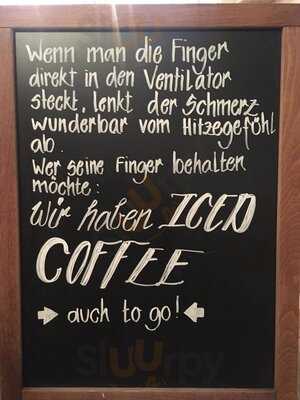 Wenn man die Finger
direkt in den Ventilator
steckt, lenkt der Schmerz
wunderbar vom Hitzegefühl
ab.
Wer seine Finger behalten
möchte:
Wir haben ICED
COFFEE
→ auch to go! ←
sluurpy